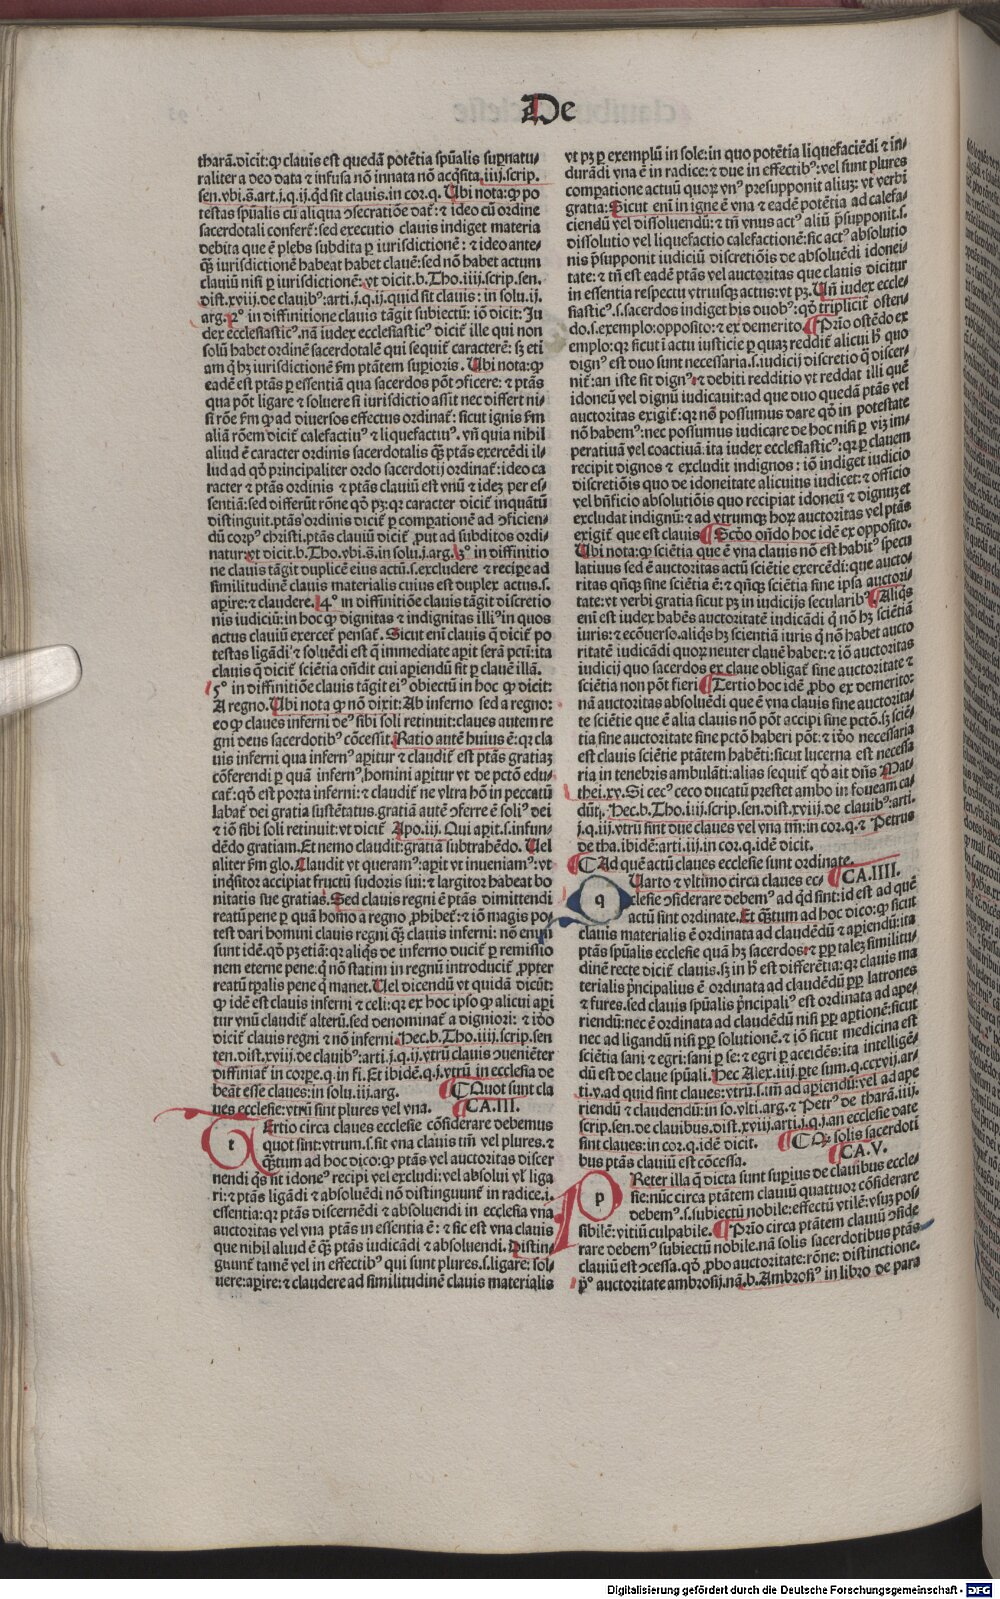 De
tharā.dicit:ꝙ clauis est quedā potētia spūalis supnatu/
raliter a deo data ⁊ infusa nō innata nō acq̄sita.iiij.scrip.
sen.vbi.s̄.art.j.q.ij.qd sit clauis.in cor.q. Ubi nota:ꝙ po
testas spūalis cū aliqua ɔsecratiōe dat᷑: ⁊ ideo cū ordine
sacerdotali confert᷑: sed executio clauis indiget materia
debita que ē plebs subdita p iurisdictionē: ⁊ ideo ante/
q̄ꝫ iurisdictionē habeat habet clauē:sed nō habet actum
clauiū nisi p iurisdictionē: vt dicit.b.Tho.iiij.scrip.sen.
dist.xviij.de clauibꝰ:arti.j.q.ij.quid sit clauis: in solu.ij.
arg. 2º in diffinitione clauis tāgit subiectū: iō dicit: Ju
dex ecclesiasticꝰ.nā iudex ecclesiasticꝰ dicit᷑ ille qui non
solū habet ordinē sacerdotalē qui sequit᷑ caracterē: sꝫ eti
am q̄ hꝫ iurisdictionē ẜm ptātem supioris. Ubi nota:ꝙ
eadē est ptās p essentiā qua sacerdos pōt ɔficere: ⁊ ptās
qua pōt ligare ⁊ soluere si iurisdictio assit nec differt ni/
si rōe ẜm ꝙ ad diuersos effectus ordinat᷑: sicut ignis ẜm
aliā rōem dicit᷑ calefactiuꝰ ⁊ liquefactiuꝰ. vn̄ quia nihil
aliud ē caracter ordinis sacerdotalis q̄ꝫ ptās exercēdi il/
lud ad qd̄ principaliter ordo sacerdotij ordinat᷑:ideo ca
racter ⁊ ptās ordinis ⁊ ptās clauiū est vnū ⁊ ideꝫ per es/
sentiā:sed differūt rōne qd̄ pꝫ:qr caracter dicit᷑ inquātū
distinguit.ptās ordinis dicit᷑ p compationē ad ɔficien/
dū corpꝰ christi.ptās clauiū dicit᷑ ꝓut ad subditos ordi/
natur:vt dicit.b.Tho.vbi.s̄.in solu.j.arg. 3º in diffinitio
ne clauis tāgit duplicē eius actū.s.excludere ⁊ recipe ad
similitudinē clauis materialis cuius est duplex actus.s.
apire:⁊ claudere. 4º in diffinitiōe clauis tāgit discretio
nis iudiciū:in hoc ꝙ dignitas ⁊ indignitas illiꝰ in quos
actus clauiū exercet᷑ pensat᷑. Sicut eni clauis q̄ dicit᷑ po
testas ligādi ⁊ soluēdi est q̄ immediate apit serā pcti:ita
clauis q̄ dicit᷑ sciētia oñdit cui apiendū sit p clauē illā.
5º in diffinitiōe clauis tāgit eiꝰ obiectū in hoc ꝙ dicit:
A regno. Ubi nota ꝙ nō dixit: Ab inferno sed a regno:
eo ꝙ claues inferni deꝰ sibi soli retinuit:claues autem re
gni deus sacerdotibꝰ cōcessit. Ratio autē huius ē:qr cla
uis inferni qua infernꝰ apitur ⁊ claudit᷑ est ptās gratiaꝫ
cōferendi p quā infernꝰ homini apitur vt de pctō edu/
cat᷑:qd̄ est porta inferni:⁊ claudit᷑ ne vltra hō in peccatū
labat᷑ dei gratia sustētatus.gratiā autē ɔferre ē soliꝰ dei
⁊ iō sibi soli retinuit:vt dicit᷑ Apo.iij. Qui apit.s.infun/
dēdo gratiam. Et nemo claudit:gratiā subtrahēdo. Uel
aliter ẜm glo. Claudit vt queramꝰ:apit vt inueniamꝰ:vt
inq̄sitor accipiat fructū sudoris sui:⁊ largitor habeat bo
nitatis sue gratias. Sed clauis regni ē ptās dimittendi
reatū pene p quā homo a regno ꝓhibet᷑:⁊ iō magis po/
test dari homini clauis regni q̄ꝫ clauis inferni: nō enim
sunt idē.qd̄ pꝫ etiā:qr aliq̄s de inferno ducit᷑ p remissio
nem eterne pene:q̄ nō statim in regnū introducit᷑ ꝓpter
reatū tpalis pene q̄ manet. Uel dicendū vt quidā dicūt:
ꝙ idē est clauis inferni ⁊ celi:qr ex hoc ipso ꝙ alicui api
tur vnū claudit᷑ alterū.sed denominat᷑ a digniori: ⁊ idō
dicit᷑ clauis regni ⁊ nō inferni. Hec.b.Tho.iiij.scrip.sen
ten.dist.xviij.de clauibꝰ:arti.j.q.ij.vtrū clauis ɔueniēter
diffiniat᷑ in corpe.q.in fi. Et ibidē.q.j.vtrū in ecclesia de
beāt esse claues:in solu.iij.arg. Quot sunt cla
ues ecclesie:vtrū sint plures vel vna. CA.III.
Tertio circa claues ecclesie cōsiderare debemus
quot sint:vtrum.s.sit vna clauis tm̄ vel plures.⁊
q̄ꝫtum ad hoc dico:ꝙ ptās vel auctoritas discer
nendi q̄s sit idoneꝰ recipi vel excludi:vel absolui vl̓ liga
ri:⁊ ptās ligādi ⁊ absoluēdi nō distinguunt᷑ in radice.i.
essentia:qr ptās discernēdi ⁊ absoluendi in ecclesia vna
auctoritas vel vna ptās in essentia ē: ⁊ sic est vna clauis
que nihil aliud ē q̄ꝫ ptās iudicādi ⁊ absoluendi. Distin/
guunt᷑ tamē vel in effectibꝰ qui sunt plures.s.ligare: sol/
uere:apire:⁊ claudere ad similitudinē clauis materialis
vt pꝫ p exemplū in sole:in quo potētia liquefaciēdi ⁊ in/
durādi vna ē in radice:⁊ due in effectibꝰ:vel sunt plures
compatione actuū quoꝝ vnꝰ presupponit aliuꝫ: vt verbi
gratia: Sicut eni in igne ē vna ⁊ eadē potētia ad calefa/
ciendū vel dissoluendū: ⁊ tn̄ vnus actꝰ aliū p̄supponit.s.
dissolutio vel liquefactio calefactionē:sic actꝰ absolutio
nis p̄supponit iudiciū discretiōis de absoluēdi idonei/
tate:⁊ tn̄ est eadē ptās vel auctoritas que clauis dicitur
in essentia respectu vtriusꝙ actus:vt pꝫ. Un̄ iudex eccle/
siasticꝰ.s.sacerdos indiget his duobꝰ:qd̄ triplicit᷑ osten/
do.s.exemplo:opposito:⁊ ex demerito. Prio ostēdo ex
emplo:qr sicut i actu iusticie p quaꝫ reddit᷑ alicui h̓ quo
dignꝰ est duo sunt necessaria.s.iudicij discretio q̄ discer/
nit᷑:an iste sit dignꝰ:⁊ debiti redditio vt reddat illi quē
idoneū vel dignū iudicauit:ad que duo quedā ptās vel
auctoritas exigit᷑:qr nō possumus dare qd̄ in potestate
nō habemꝰ:nec possumus iudicare de hoc nisi p viꝫ im/
peratiuā vel coactiuā.ita iudex ecclesiasticꝰ:qr p clauem
recipit dignos ⁊ excludit indignos: iō indiget iudicio
discretiōis quo de idoneitate alicuius iudicet:⁊ officio
vel bn̄ficio absolutiōis quo recipiat idoneū ⁊ dignuꝫ et
excludat indignū:⁊ ad vtrumꝙ hoꝝ auctoritas vel ptās
exigit᷑ que est clauis Scd̄o oñdo hoc idē ex opposito.
Ubi nota:ꝙ sciētia que ē vna clauis nō est habitꝰ specu
latiuus sed ē auctoritas actū sciētie exercēdi:que aucto/
ritas qn̄ꝙ sine sciētia ē:⁊ qn̄ꝙ sciētia sine ipsa auctori/
tate:vt verbi gratia sicut pꝫ in iudicijs secularibꝰ. Aliq̄s
eni est iudex habēs auctoritatē iudicādi q̄ nō hꝫ sciētiā
iuris:⁊ ecōuerso.aliq̄s hꝫ scientiā iuris q̄ nō habet aucto
ritatē iudicādi quoꝝ neuter clauē habet:⁊ iō auctoritas
iudicij quo sacerdos ex claue obligat᷑ sine auctoritate ⁊
sciētia non pōt fieri Tertio hoc idē ꝓbo ex demerito:
nā auctoritas absoluēdi que ē vna clauis sine auctorita/
te sciētie que ē alia clauis nō pōt accipi sine pctō.sꝫ sciē/
tia sine auctoritate sine pctō haberi pōt:⁊ idō necessaria
est clauis sciētie ptātem habēti:sicut lucerna est necessa
ria in tenebris ambulāti:alias sequit᷑ qd̄ ait dn̄s Mat/
thei.xv. Si cecꝰ ceco ducatū prestet ambo in foueam ca/
dūt. Hec.b.Tho.iiij.scrip.sen.dist.xviij.de clauibꝰ:arti.
j.q.iij.vtrū sint due claues vel vna tm̄:in cor.q.⁊ Petrus
de tha.ibidē:arti.iij.in cor.q.idē dicit.
Ad quē actū claues ecclesie sunt ordinate. CA.IIII.
Quarto ⁊ vltimo circa claues ec/
clesie ɔsiderare debemꝰ ad qd sint:id est ad quē
actū sint ordinate. Et q̄ꝫtum ad hoc dico:ꝙ sicut
clauis materialis ē ordinata ad claudēdū ⁊ apiendū:ita
ptās spūalis ecclesie quā hꝫ sacerdos:⁊ ꝓꝑ taleꝫ similitu/
dinē recte dicit᷑ clauis.sꝫ in h̓ est differētia:qr clauis ma
terialis p̄ncipalius ē ordinata ad claudēdū ꝓꝑ latrones
⁊ fures.sed clauis spūalis p̄ncipaliꝰ est ordinata ad ape/
riendū:nec ē ordinata ad claudēdū nisi ꝓꝑ aptionē:sicut
nec ad ligandū nisi ꝓꝑ solutionē. ⁊ iō sicut medicina est
sciētia sani ⁊ egri:sani p se:⁊ egri p accidēs:ita intelligē/
dū est de claue spūali. Hec Alex.iiij.pte sum.q.ccxvij.ar/
ti.v.ad quid sint claues:vtrū.s.im̄ ad apiendū:vel ad ape
riendū ⁊ claudendū:in so.vlti.arg.⁊ Petrꝰ de thara.iiij.
scrip.sen.de clauibus.dist.xviij.arti.j.q.j.an ecclesie date
sint claues:in cor.q.idē dicit. Qꝙ solis sacerdoti
bus ptās clauiū est cōcessa. CA.V.
Preter illa q̄ dicta sunt supius de clauibus eccle/
sie:nūc circa ptātem clauiū quattuor cōsiderare
debemꝰ.s.subiectū nobile:effectū vtilē:vsuꝫ pos/
sibilē:vitiū culpabile. Prio circa ptātem clauiū ɔside
rare debemꝰ subiectū nobile.nā solis sacerdotibus ptās
clauiū est ɔcessa.qd̄ ꝓbo auctoritate:rōne: distinctione.
pº auctoritate ambrosij.nā.b.Ambrosiꝰ in libro de para
Digitalisierung gefördert durch die Deutsche Forschungsgemeinschaft - DFG